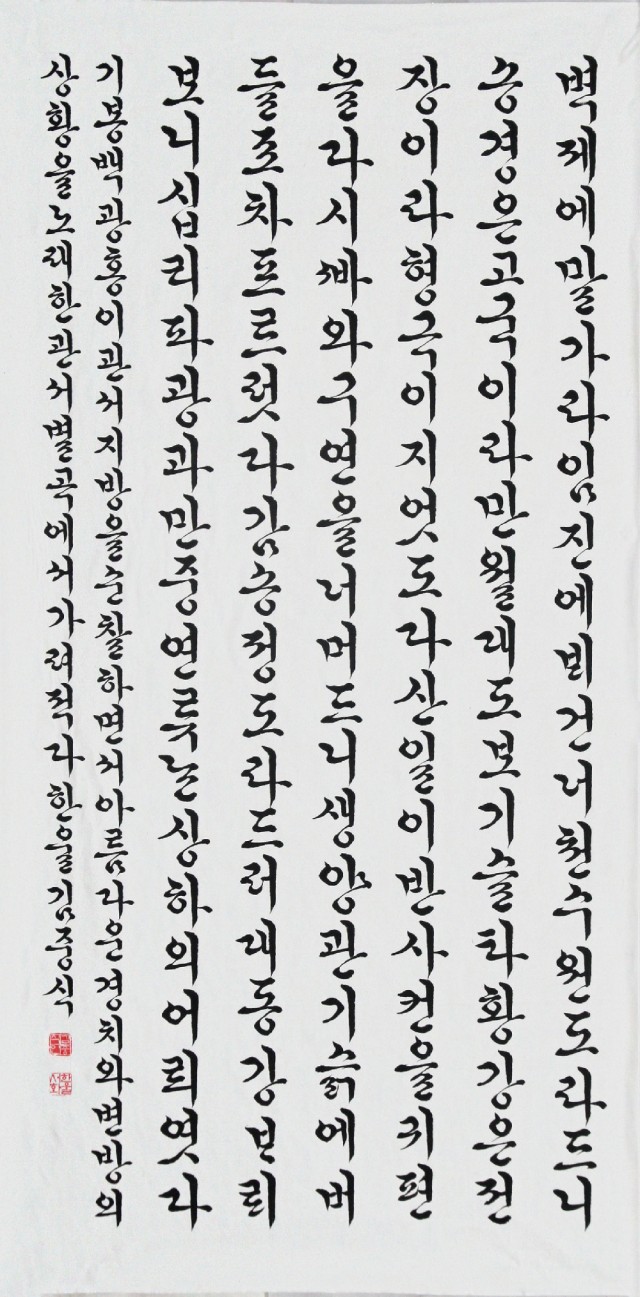 벽제에말가라임진에배건너천수원도라드니
송경은고국이라만월대도보기슬타황강은전
장이라형극이지엇도다산일이반사컨을귀편
을다시빠와구연을너머드니생양관기슭에버
들조차포르럿다감송정도라드러대동강바라
보니십리파광과만중연류는상하의어릐엿다
기봉백광홍이관서지방을순찰하면서아름다운경치와변방의
상황을노래한관서별곡에서가려적다한얼김중식